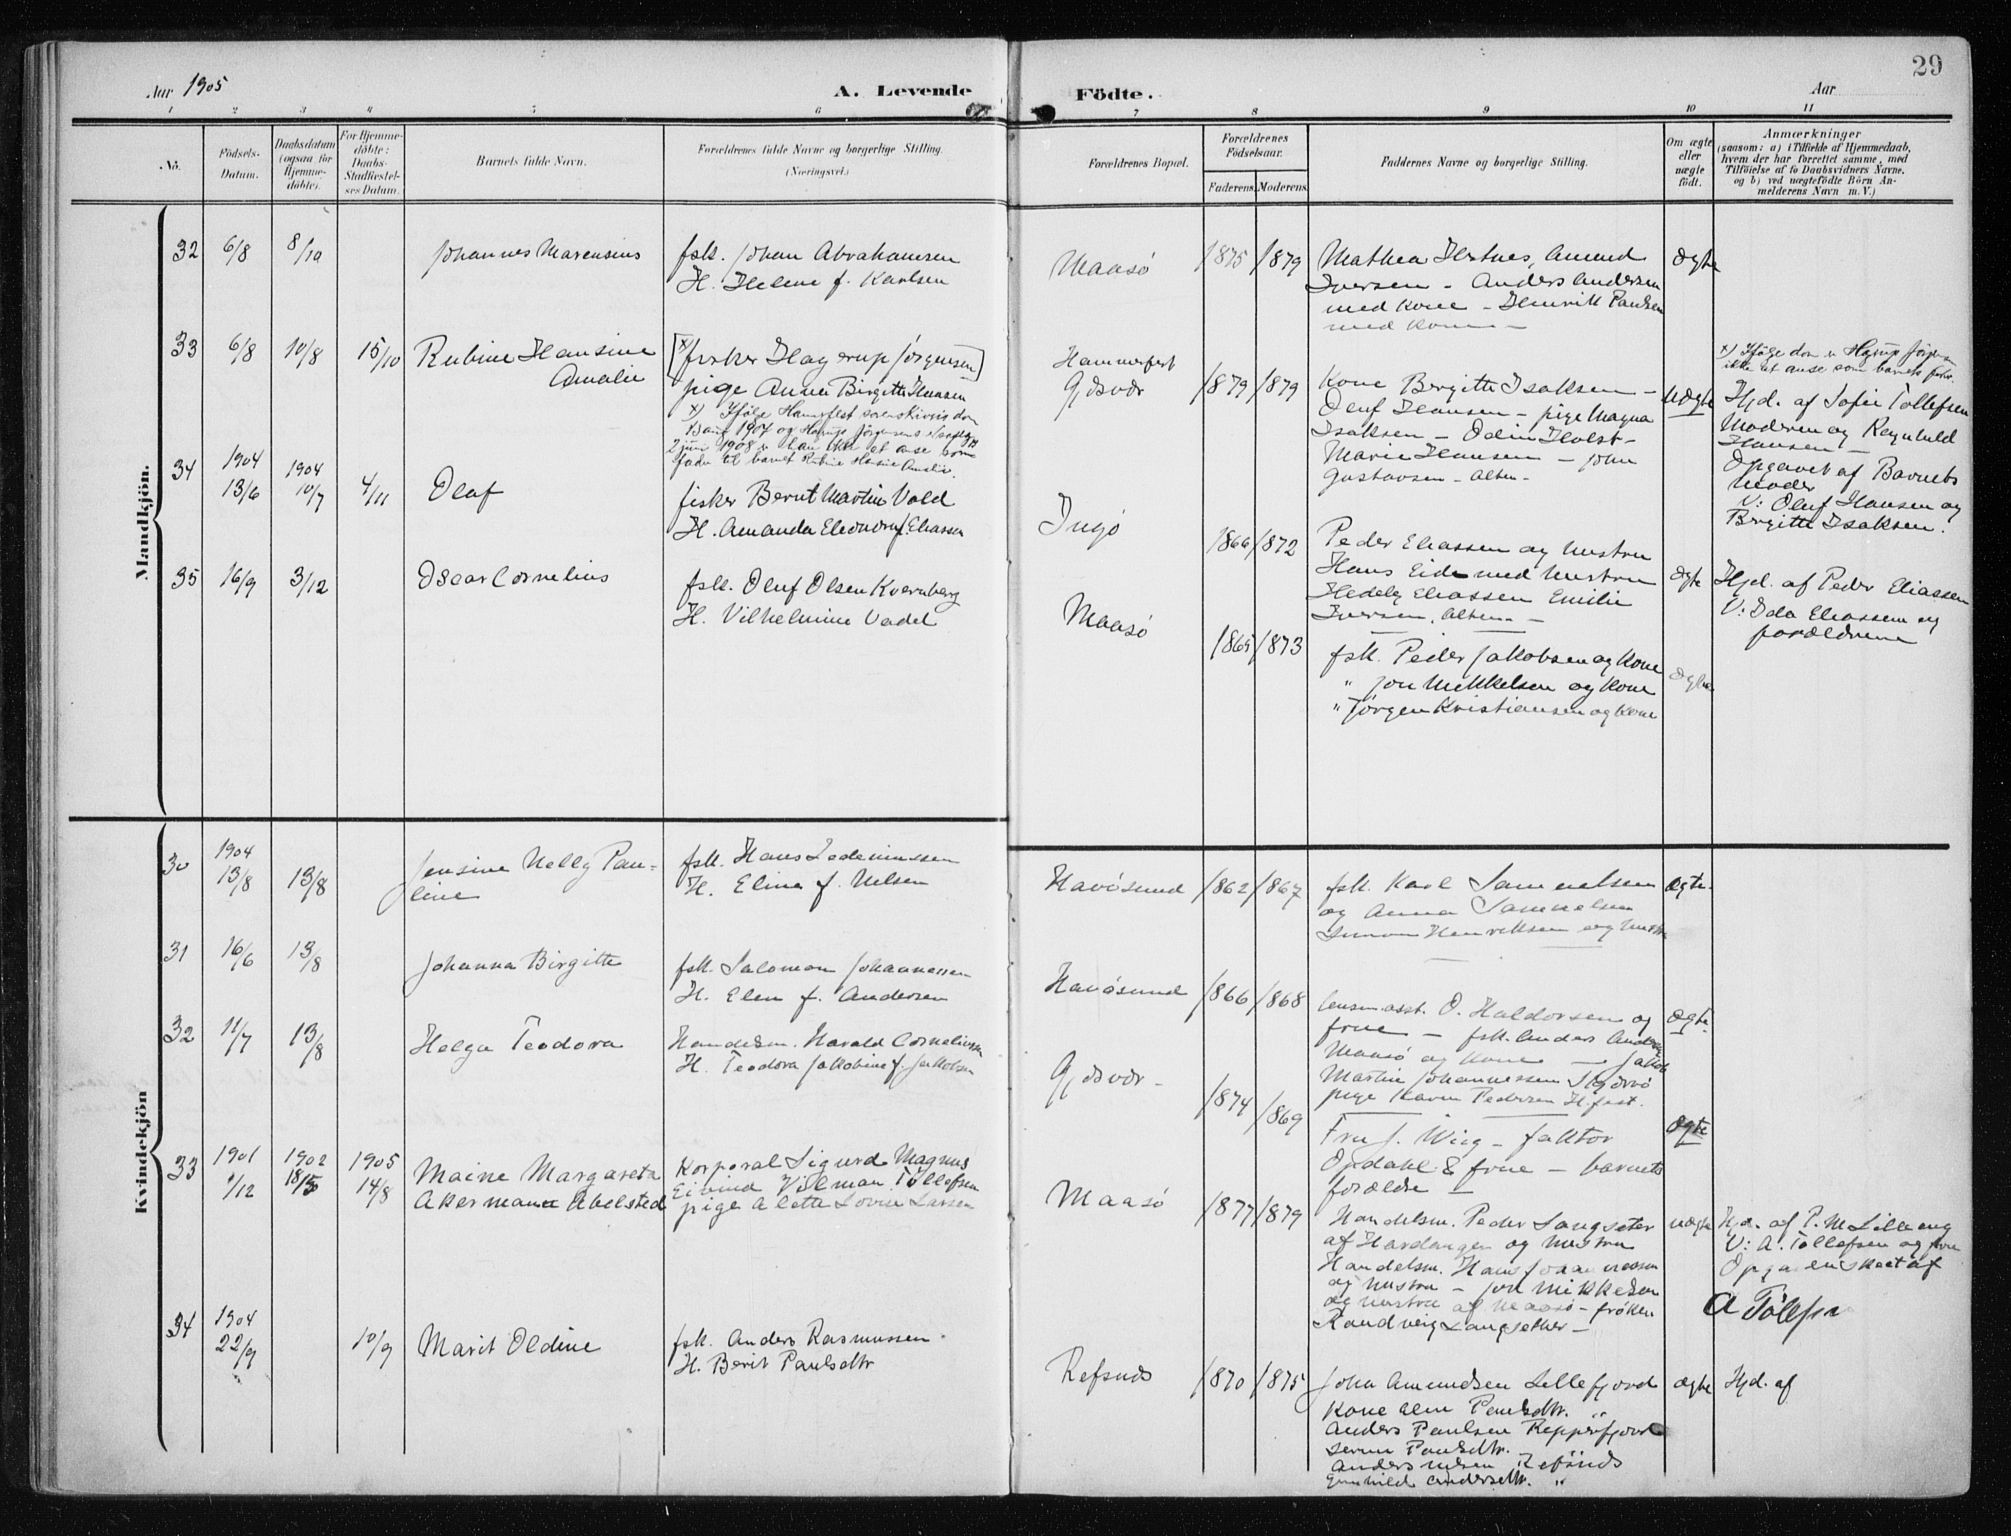 29
Aar 1905
A. Levende
Födte.
Aar
1 2 3 4 5 6 7 8 9 10 11
No.
Födsels-
Datum.
Daabsdatum
(ogsaa for
Hjemme-
döbte).
For Hjemme-
döbte:
Daabs-
Stadfæstel-
ses Datum.
Barnets fulde Navn.
Forældrenes fulde Navne og borgerlige Stilling.
(Næringsvei.)
Forældrenes Bopæl.
Forældrenes
Födselsaar.
Faderens.
Moderens.
Faddernes Navne og borgerlige Stilling.
Om ægte
eller
uægte
födt.
Anmærkninger
(saasom: a) i Tilfælde af Hjemmedaab,
hvem der har forrettet samme, med
Tilföielse af to Daabsvidners Navne.
og b) ved uægtefödte Börn An-
melderens Navn m. V.)
Mandkjön.
32 6/8 8/10 Johannes Marensius
fsk. Johan Abrahamsen
H. Helene f. Karlsen
Maasö 1875 1879
Mathea Hertnes, Amund
Iversen - Anders Andersen
med Kone - Henrik Paulsen
med Kone -
ægte
33 6/8 10/8 15/10 Rubine Hansine
Amalie
[x) fisker Hagerup Jörgensen]
pige Anna Birgitte Hansen
x) Ifölge Hammfest sorenskrivers dom
1907 og Hagrup Jörgensens
2 juni 1908 er han ikke at anse som
fader til barnet Rubine Hansine Amalie.
Hammerfest
Gjösvær 1879 1879
Kone Bergitte Isaksen -
Oluf Hansen - pige Magna
Isaksen - Odin Holst -
Marie Hansen - John
Gustavsen - Alten -
uægte
x) Ifölge dom er Hagrup Jörgensen
ikke at anse som barnets fader.
Hjd. af Sofie Tollefsen
Moderen og Ragnhild
Hansen -
Opgavet af Barnets
Moder
V: Oluf Hansen og
Birgitte Isaksen.
34 1904
13/6 1904
10/7 4/11 Olaf
fisker Bernt Martin Vold
H. Amanda Eleonora f. Eliassen
Ingö 1866 1872
Peder Eliassen og hustru
Hans Eide med hustru
Hedely Eliassen Emilie
Iversen, Alten -
ægte
Hjd. af Peder Eliassen
V: Ida Eliassen og
forældrene
35 16/9 3/12 Oscar Cornelius
fsk. Oluf Olsen Kvernberg
H. Vilhelmine Vadel
Maasö 1865 1873
fsk. Peder Jakobsen og Kone
" Jon Mikkelsen og Kone
" Jörgen Kristiansen og Kone
ægte
Kvindekjön
30 1904
13/8 13/8 Jensine Nelly Pau-
line
fsk. Hans
H. Elina f. Nilsen
Havösund 1862 1867
fsk. Karl Samuelsen
og Anna Samuelsen
Simon Henriksen og hustru
ægte.
31 16/6 13/8 Johanna Birgitte
fsk. Salomon Johannessen
H. Elen f. Andersen
Havösund 1866 1868
lensm. asst. O. Haldorsen og
frue - fsk. Anders Andersen
Maasö og Kone - Jakob
Martin Johannessen
pige Karen Pedersen H.fest.
ægte.
32 11/7 13/8 Helga Teodora
Handelsm. Harald Corneliussen
H. Teodora Jakobine f. Jakobsen
Gjösvær - 1874 1869
Fru J. Wiig - faktor
Opdahl & frue - barnets
forældre -
ægte
33 1901
1/12 1902
18/5 1905
14/8 Maine Margareta
Akermana Abelsted
Korporal Sigurd Magnus
Eivind Vilman Tollefsen
pige Alette Lovise Larsen
Maasö 1877 1879
Handelsm. Peder Langseter
af Hardanger og hustru
Handelsm. Hans Johannessen
og hustru - Jon Mikkelsen
og hustru af Maasö - fröken
Randveig Langsether -
uægte
Hjd. af P. M Lilleeng
V: A. Tollefsen og frue
Opgaven skeet af
A Tölefsn
34 1904
22/9 10/9 Marit Oldine
fsk. Anders Rasmussen.
H. Berit Paulsdtr
Refsnds 1870 1875
John Amundsen Lillefjord
Kone Elen Paulsdtr. "
Anders Paulsen Repperfjord
Paulsdtr.
Anders Nilsen Refsnds
Gunhild Andersdtr. "
ægte
Hjd. af